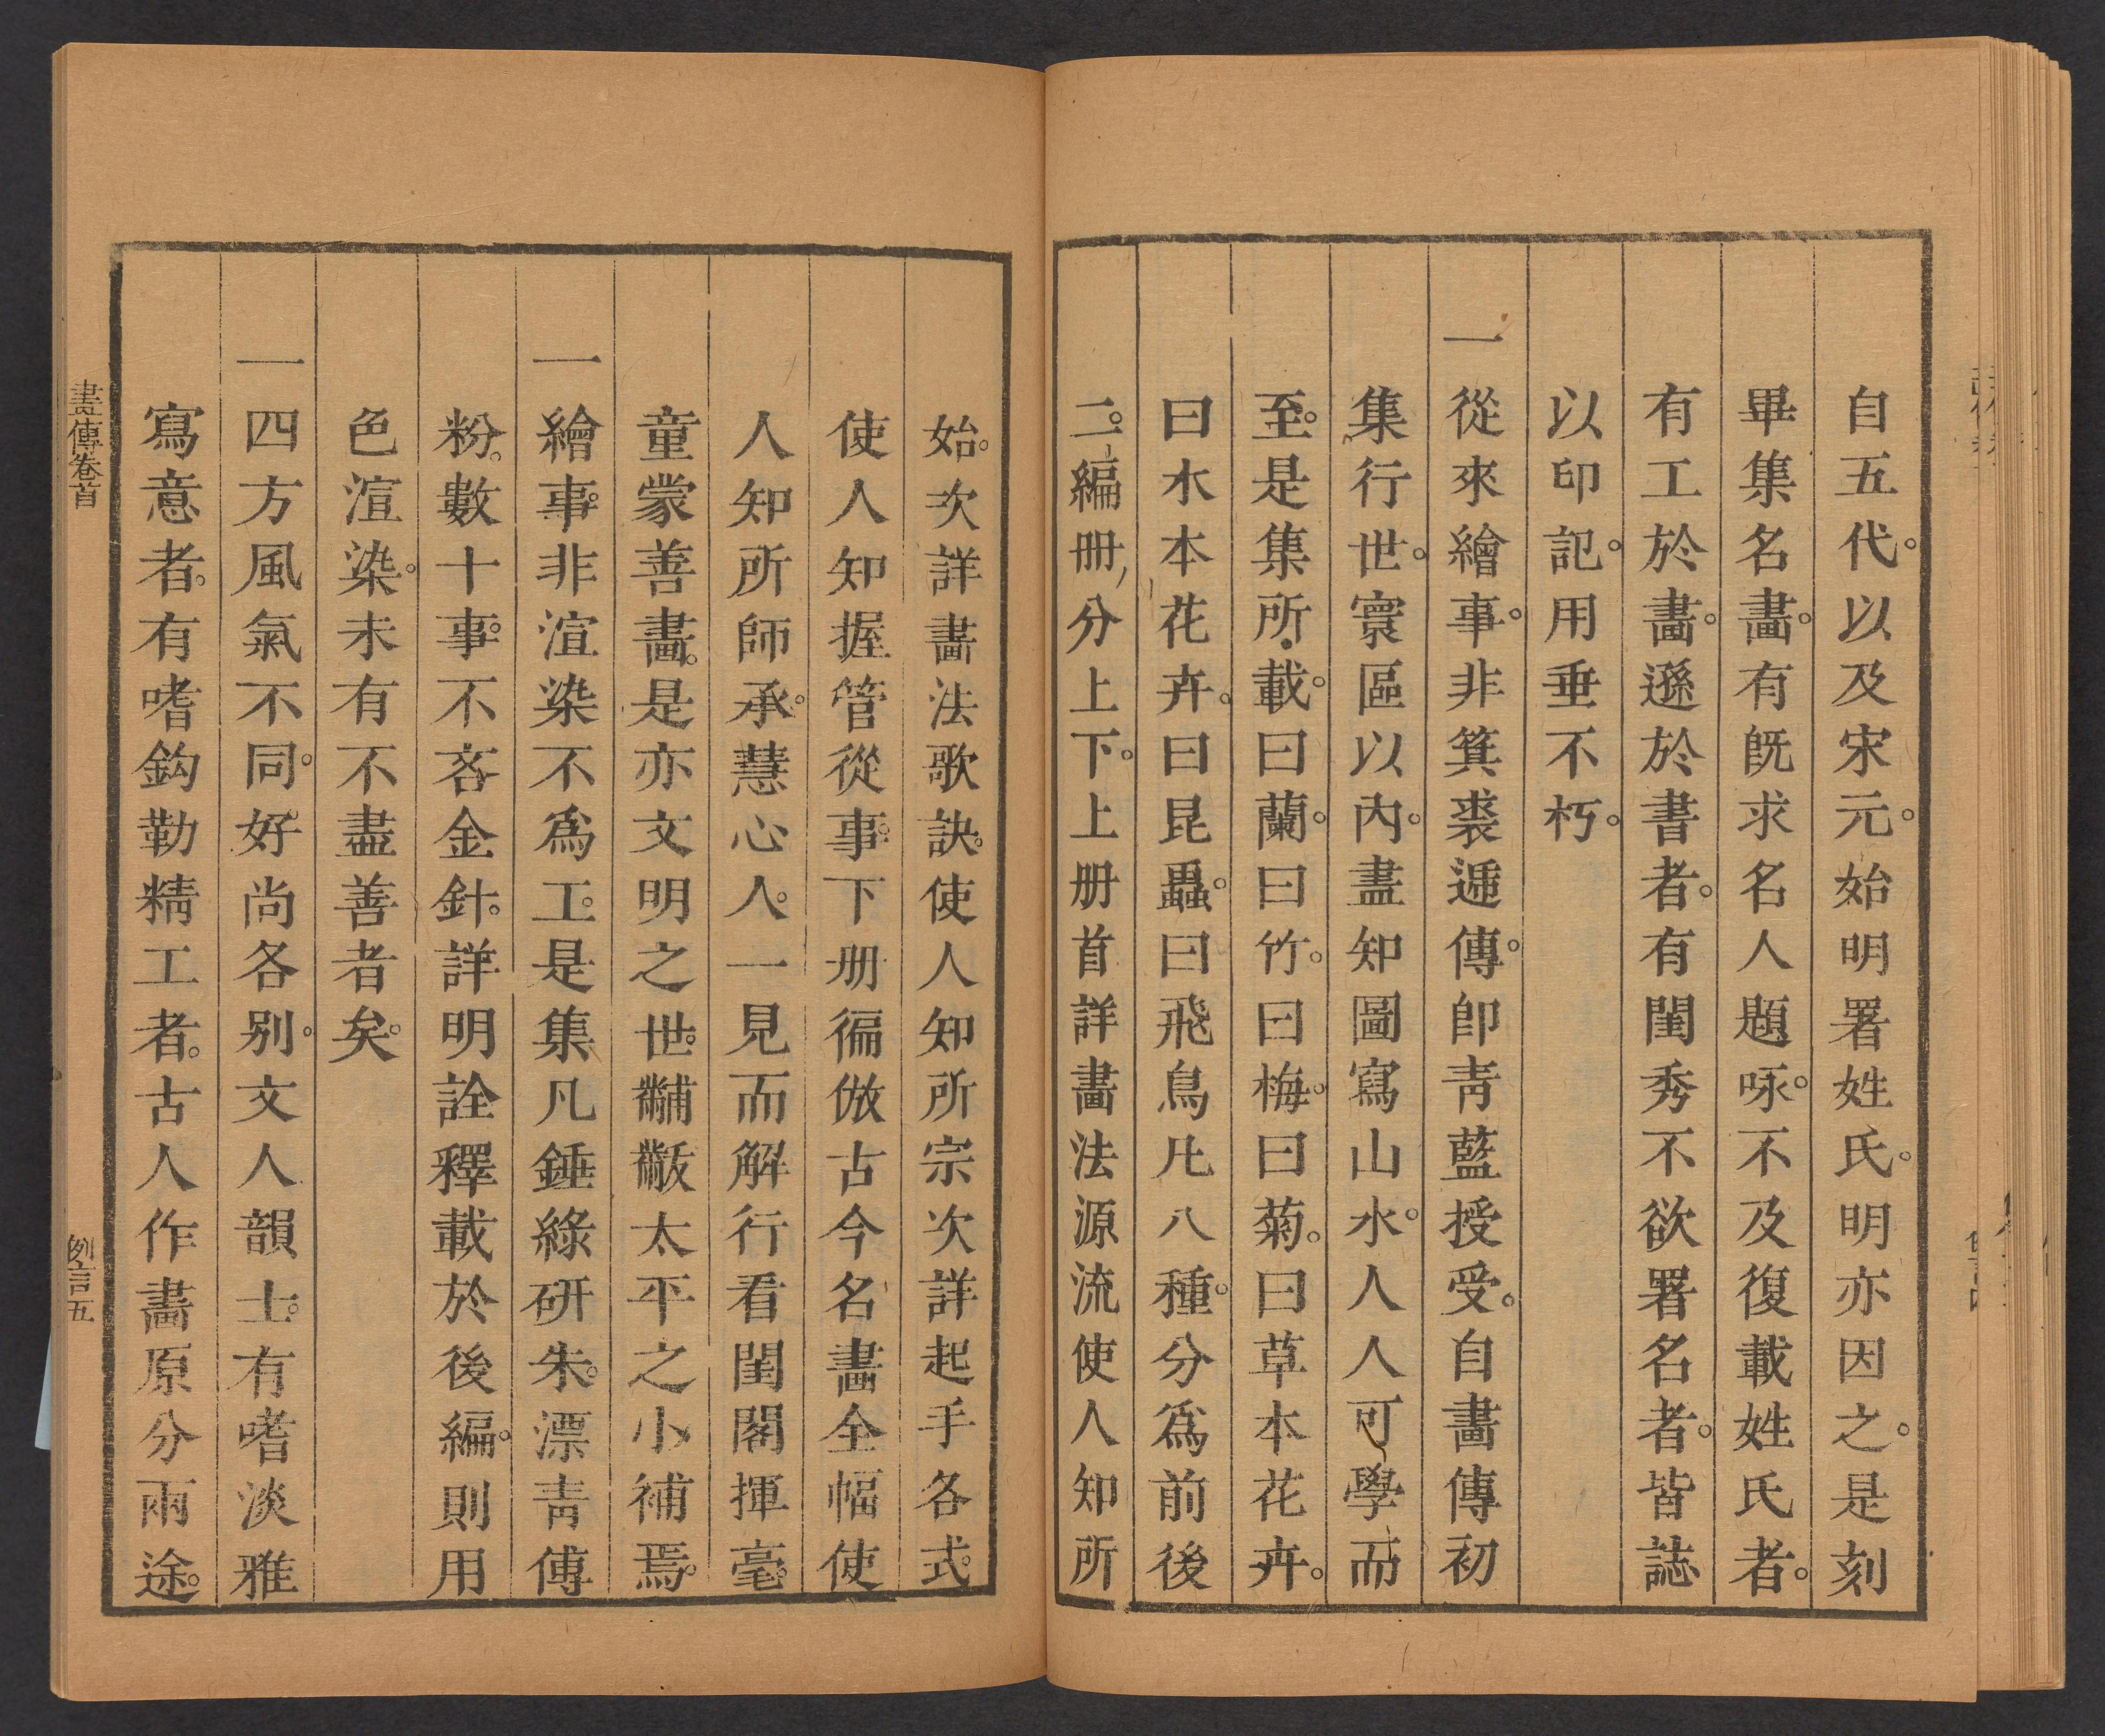 自五代。以及宋元。始明署姓氏。明亦因之。是刻
畢集名畵。有旣求名人題咏。不及復載姓氏者。
有工於畵。遜於書者。有閨秀不欲署名者。皆誌
以印記。用垂不朽。
一從來繪事。非箕裘遞傳。卽靑藍授受。自畵傳初
集行世。寰區以內。盡知圖寫山水。人人可學而
至。是集所載。曰蘭。曰竹。曰梅。曰菊。曰草本花卉。
曰木本花卉。曰昆蟲。曰飛鳥凡八種。分爲前後
二編。冊分上下。上册首詳畵法源流使人知所
始。次詳畵法歌訣。使人知所宗次詳起手各式。
使人知握管從事。下册徧倣古今名畵全幅使
人知所師承。慧心人。一見而解行看閨閣揮毫。
童蒙善畵。是亦文明之世。黼黻太平之小補焉。
一繪事非渲染不爲工。是集凡錘綠硏朱。漂靑傅
粉。數十事。不吝金針。詳明詮釋載於後編。則用
色渲染。未有不盡善者矣。
一四方風氣不同。好尚各别。文人韻士。有嗜淡雅
寫意者。有嗜鈎勒精工者。古人作畵原分兩途。
畫傳卷首
例言五